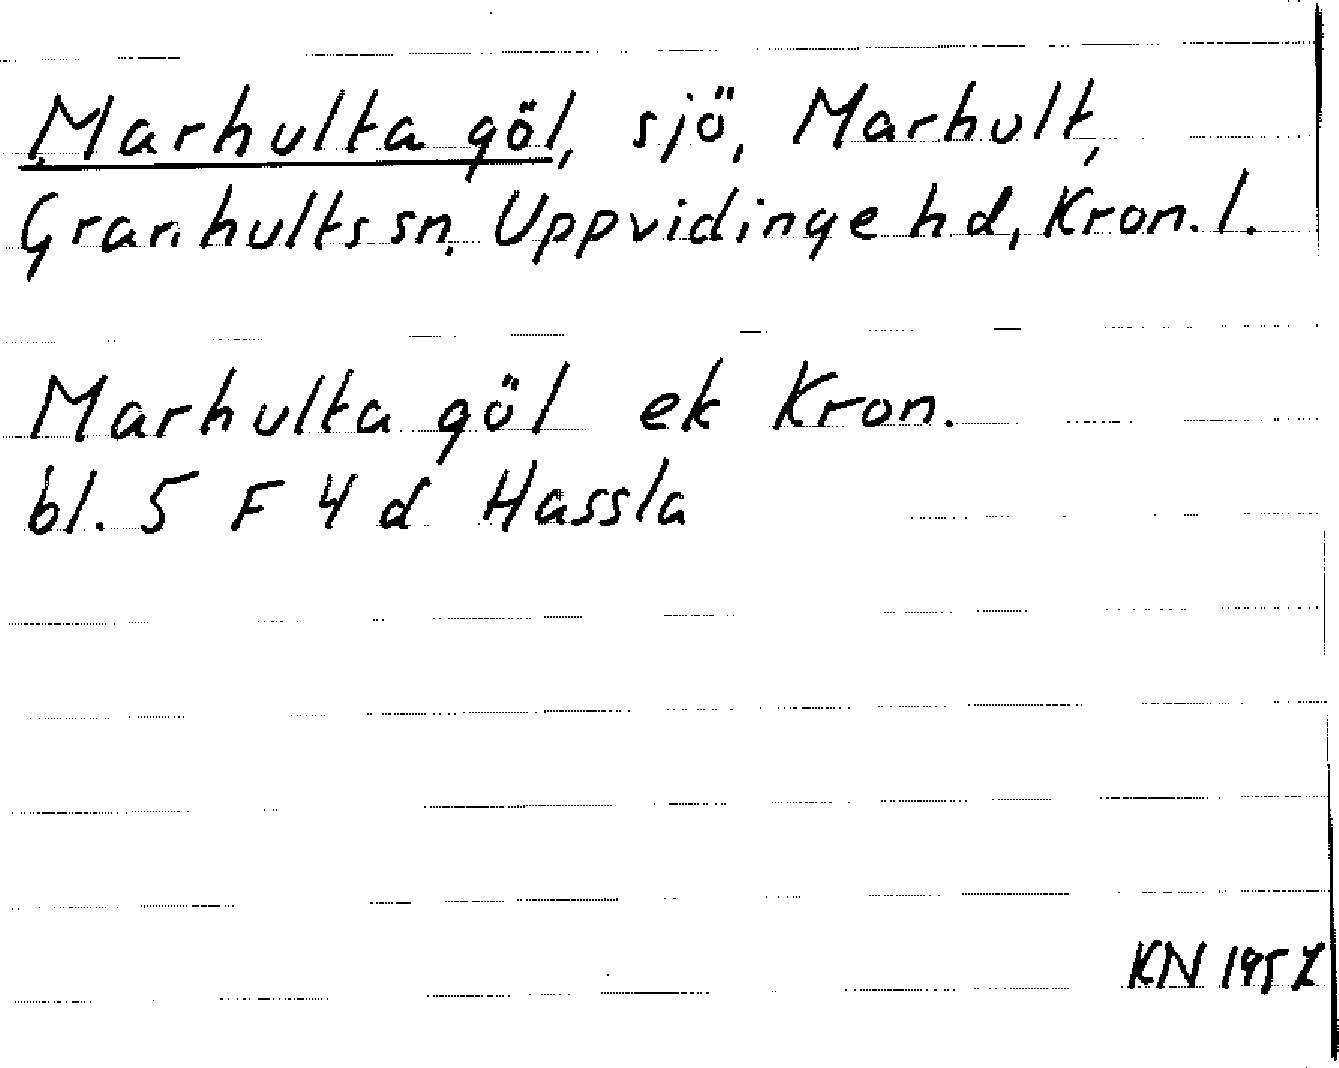 Marhulta göl, sjö, Marhult,
Granhults sn, Uppvidinge hd, Kron. l.
Marhulta göl ek Kron.
bl. 5 F 4 d Hassla
KN 1957